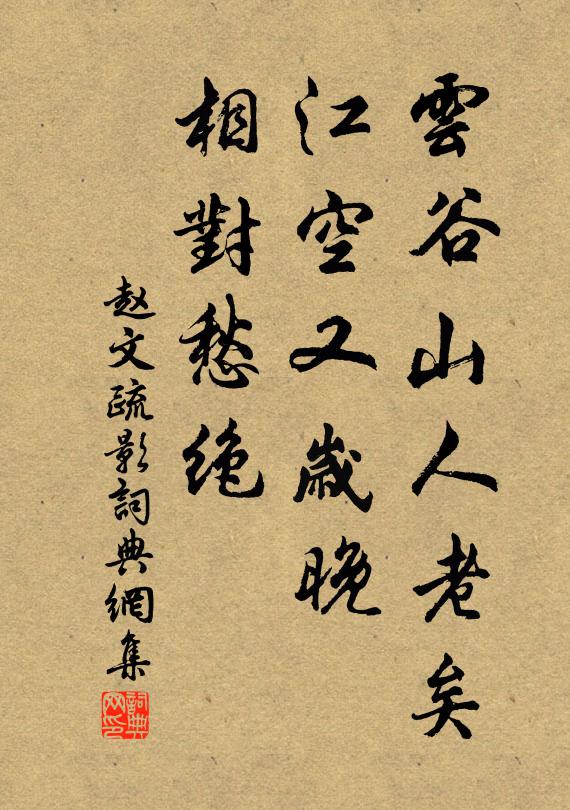 雲谷山人老矣
江空又歲晚
相對愁絶
赵文疏影詞典網集
詞典网印